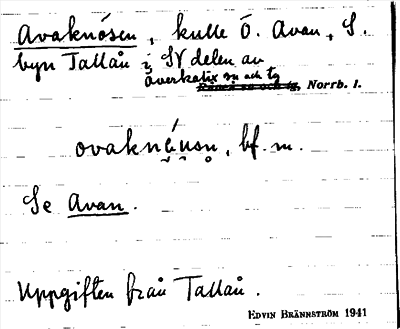 Avaknösen, kulle Ö. Avan, S.
byn Tallån i SV delen av
Överkalix sn och tg
Råneå sn och tg, Norrb. l.
ovaknǻusn, bf. m.
Se Avan.
Uppgiften från Tallån.
EDVIN BRÄNNSTRÖM 1941